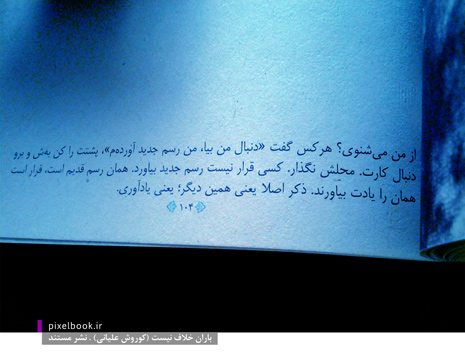 از من می‌شنوی؟ هرکس گفت «دنبال من بیا، من رسم جدید آورده‌م»، پشتت را کن به‌ش و برو
دنبال کارت. محلش نگذار. کسی قرار نیست رسم جدید بیاورد. همان رسمِ قدیم است، قرار است
همان را یادت بیاورند. ذکر اصلا یعنی همین دیگر؛ یعنی یادآوری.
۱۰۴
pixelbook.ir
باران خلاف نیست (کوروش علیانی) . نشر مستند